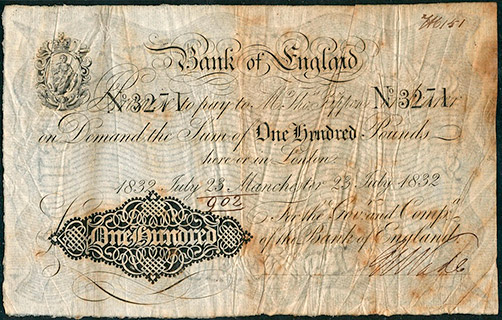 Bank of England
No. 3271 to pay to Mr. Thos. Rippon No. 3271
on Demand the Sum of One Hundred Pounds
here or in London
1832 July 23 Manchester 23 July 1832
902
For the Govr. and Compa.
of the Bank of England.
One Hundred